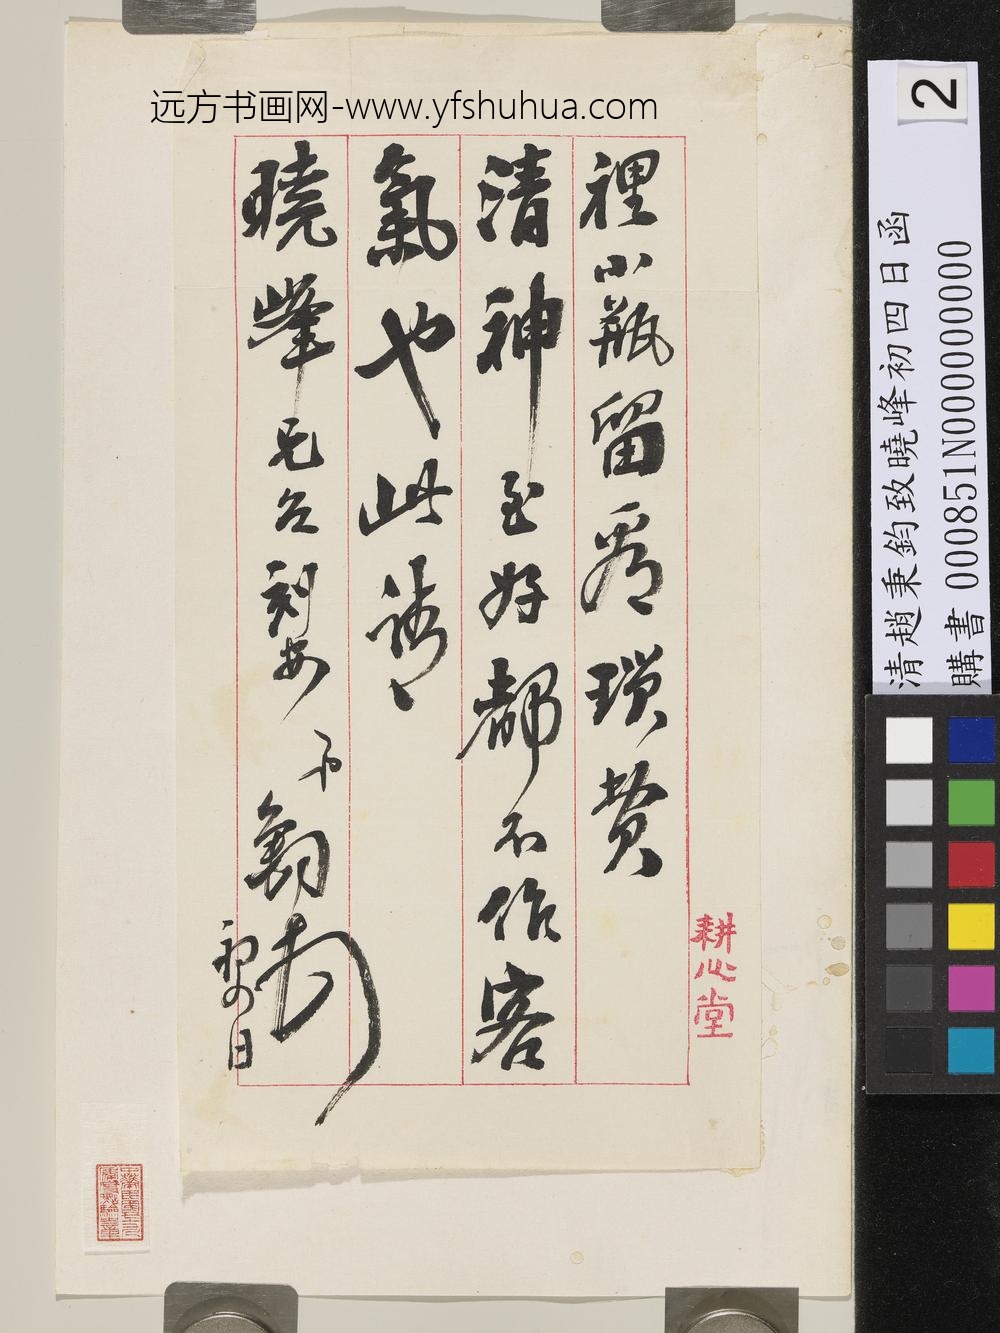 远方书画网-www.yfshuhua.com
裡小瓶留為瑣費
清神至好都不作客
氣也此請
曉峯兄台刻安 弟
鈞頓
初四日
耕心堂
清趙秉鈞致曉峰初四日函
購書 000851N000000000
2